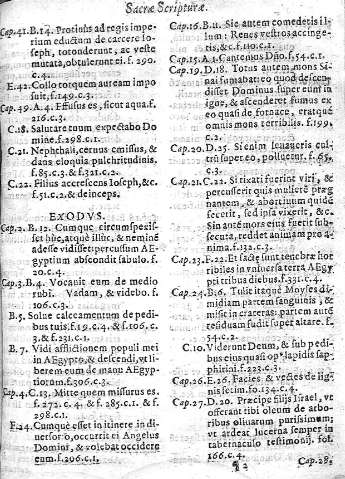 Sacræ Scripturæ.
Cap.41.B.14. Protinus ad regis imperium
eductum de carcere Ioseph,
totonderunt; ac veste
mutata, obtulerunt ei. f. 290.
c.4.
E.42. Collo torquem auream imposuit,
f.149.c.3.
Cap.49.A.4. Effusus es, sicut aqua.f.
216.c.3.
C.18. Salutare tuum expectabo Domine.
f.298.c.1.
C.21. Nephthali, ceruus emissus, &
dans eloquia pulchritudinis.
f.85.c.3. & f.321.c.2.
C.22. Filius accrescens Ioseph, &c.
f.51.c.2. & deinceps.
EXODVS.
Cap.2.B.12. Cumque circumspexisset
huc, atque illuc, & neminem
adesse vidisset: percussum AEgyptium
abscondit sabulo. f.
20.c.4.
Cap.3.B.4. Vocauit eum de medio
rubi. Vadam, & videbo. f.
106.c.3.
B.5. Solue calceamentum de pedibus
tuis.f.19.c.4. & f.106.c.
3. & f.231.c.1.
B.7. Vidi afflictionem populi mei
in AEgypto, & descendi, vt liberem
eum de manu AEgyptiorum.
f.306.c.3.
Cap.4.C.13. Mitte quem missurus es.
f.272.c.4. & f.285.c.1. & f.
298.c.1.
F.24. Cumque esset in itinere in diuersorio,
occurrit ei Angelus
Domini, & volebat occidere
eum.f.206.c.1.
Cap.16.B.11. Sic autem comedetis illum:
Renes vestros accingetis,
&c.f.110.c.1.
Cap.15.A.1. Cantemus Dño.f.54.c.1.
Cap.19.D.18. Totus autem mons Sinai
fumabat: eo quod descendisset
Dominus super eum in
igne, & ascenderet fumus ex
eo quasi de fornace, eratque
omnis mons terribilis. f.199.
c.2.
Cap.20.D.25. Si enim leuaueris cultrũ
super eo, polluetur. f.65.
c.3.
Cap.21.C.22. Si rixati fuerint viri, &
percusserit quis mulierẽ prægnantem,
& abortiuum quidẽ
fecerit, sed ipsa vixerit, &c.
Sin autẽ mors eius fuerit subsecuta,
reddet animam pro anima.
f.132.c.3.
Cap.23.F.22. Et factæ sunt tenebræ horribiles
in vniuersa terra AEgypti
tribus diebus.f.331.c.4.
Cap.24.B.6. Tulit itaque Moyses dimidiam
partem sanguinis, &
misit in crateras: partem autẽ
residuam fudit super altare. f.
54.c.2.
C.10. Viderunt Deum, & sub pedibus
eius quasi opus lapidis sapphirini.
f.223.c.3.
Cap.26.E.26. Facies, & vectes de lignis
setim.fo.134.c.4.
Cap.27.D.20. Præcipe filijs Israel, vt
offerant tibi oleum de arboribus
oliuarum purissimum;
vt ardeat lucerna semper in
tabernaculo testimonij. fol.
166.c.4.
Cap.28.